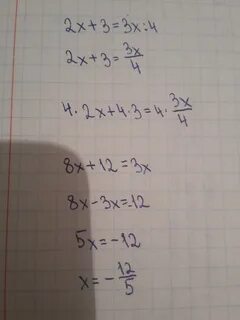 2x+3=3x:4
2x+3=3x/4
4·2x+4·3=4·3x/4
8x+12=3x
8x-3x=-12
5x=-12
x=-12/5